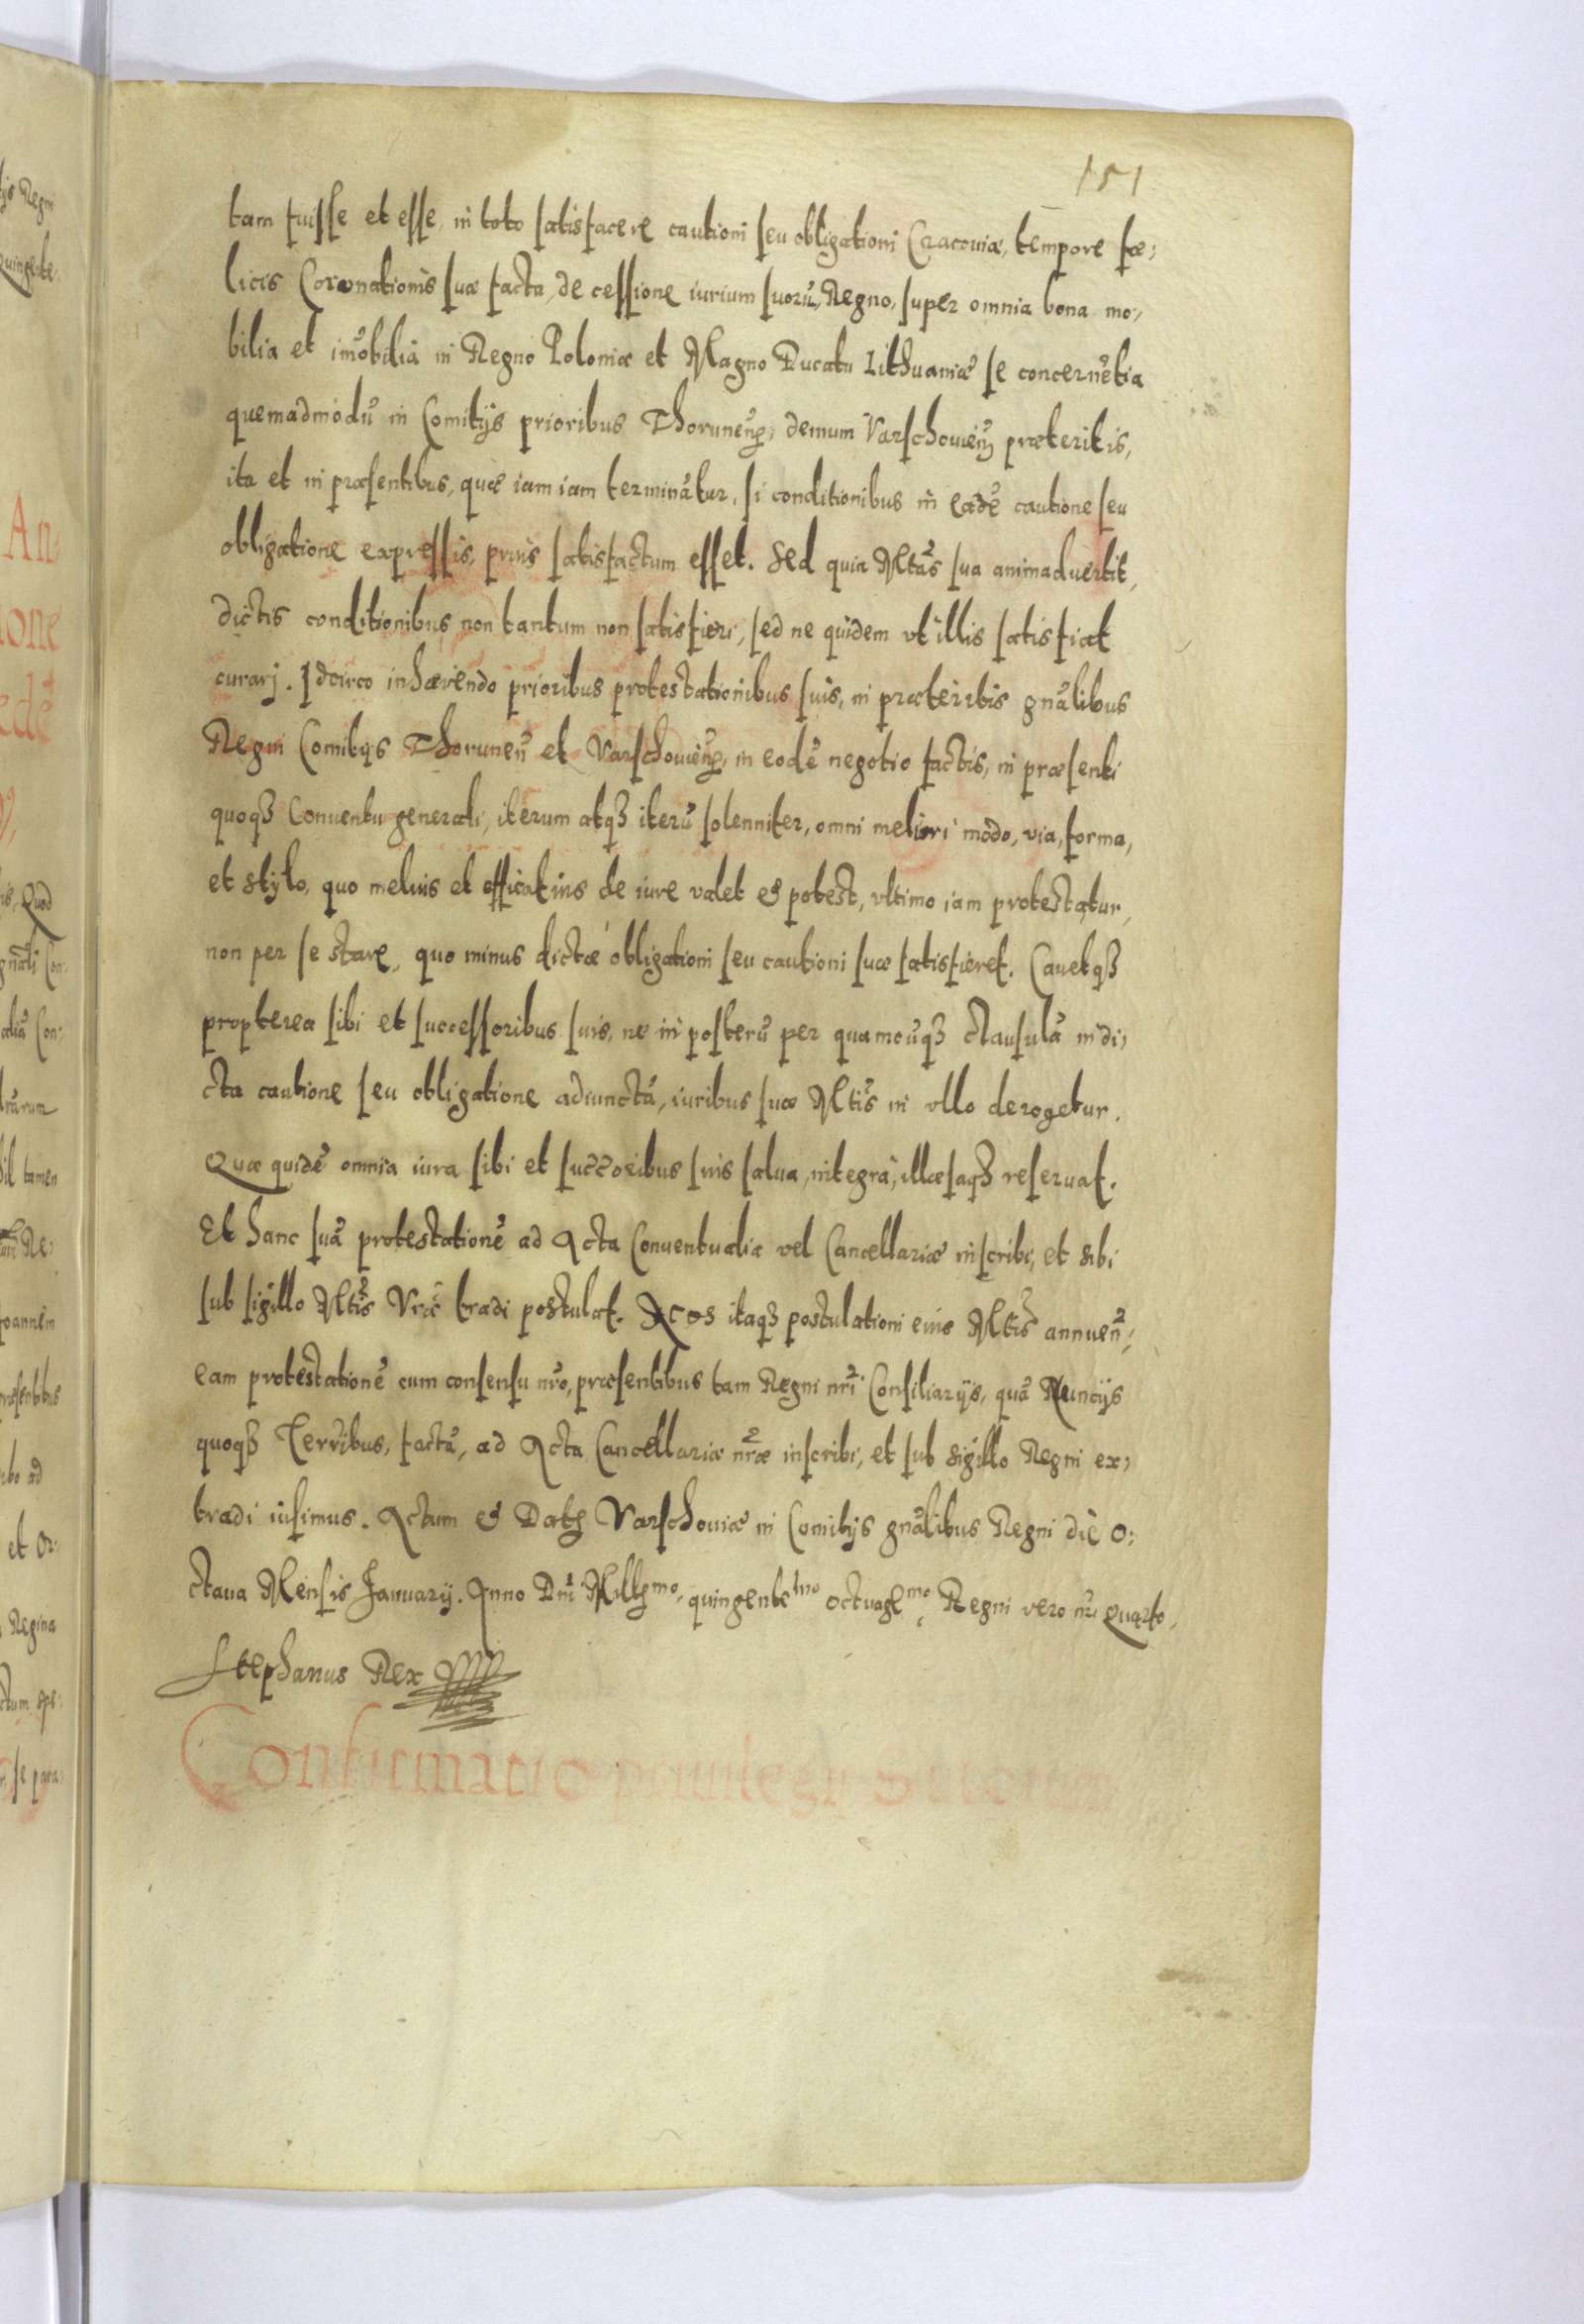 151
tam fuisse et esse, in toto satisfacere cautioni seu obligationi Cracouiæ, tempore fæ:
licis Coronationis suæ facta, de cessione iurium suorũ, Regno, super omnia bona mo:
bilia et im̃obilia in Regno Poloniæ et Magno Ducatu Lithuaniæ se concernẽtia
quemadmodũ in Comitijs prioribus Thoruneñ, demum Varschouieñ præteritis,
ita et in præsentibus, quæ iam iam terminãtur, si conditionibus in eadẽ cautione seu
obligatione expressis, prius satisfactum esset. Sed quia Mtãs sua animaduertit,
dictis conditionibus non tantum non satisfieri, sed ne quidem vt illis satisfiat
curarj. Idcirco inhærendo prioribus protestationibus suis, in præteritis gnãlibus
Regni Comitijs Thoruneñ et Varschouieñ, in eodẽ negotio factis, in præsenti
quoqȝ Conuentu generali, iterum atqȝ iterũ solenniter, omni meliori modo, via, forma,
et stylo, quo melius et efficatius de iure valet & potest, vltimo iam protestatur,
non per se stare, quo minus dictæ obligationi seu cautioni suæ satisfieret. Cauetqȝ
propterea sibi et successoribus suis, ne in posterũ per quamcũqȝ clausulã in di:
cta cautione seu obligatione adiunctã, iuribus suæ Mtis̃ in vllo derogetur.
Quæ quidẽ omnia iura sibi et succ̃oribus suis salua, integra, illæsaqȝ reseruat.
Et hanc suã protestationẽ ad Acta Conuentualia vel Cancellariæ inscribi, et sibi
sub sigillo Mtis̃ Vræ̃ tradi postulat. Nos itaqȝ postulationi eius Mtis̃ annueñ:
eam protestationẽ cum consensu nr̃o, præsentibus tam Regni nrĩ Consiliarijs, quã Nuncijs
quoqȝ Terr̃ibus, factã, ad Acta Cancellariæ nr̃æ inscribi, et sub sigillo Regni ex:
tradi iusimus. Actum & Dat̃ Varschouiæ in Comitijs gnãlibus Regni die o:
ctaua Mensis Januarij. Anno Dnĩ Mill̃mo, quingentẽmo octuagẽmo, Regni vero nrĩ quarto.
Stephanus Rex
Confirmatio priuilegij